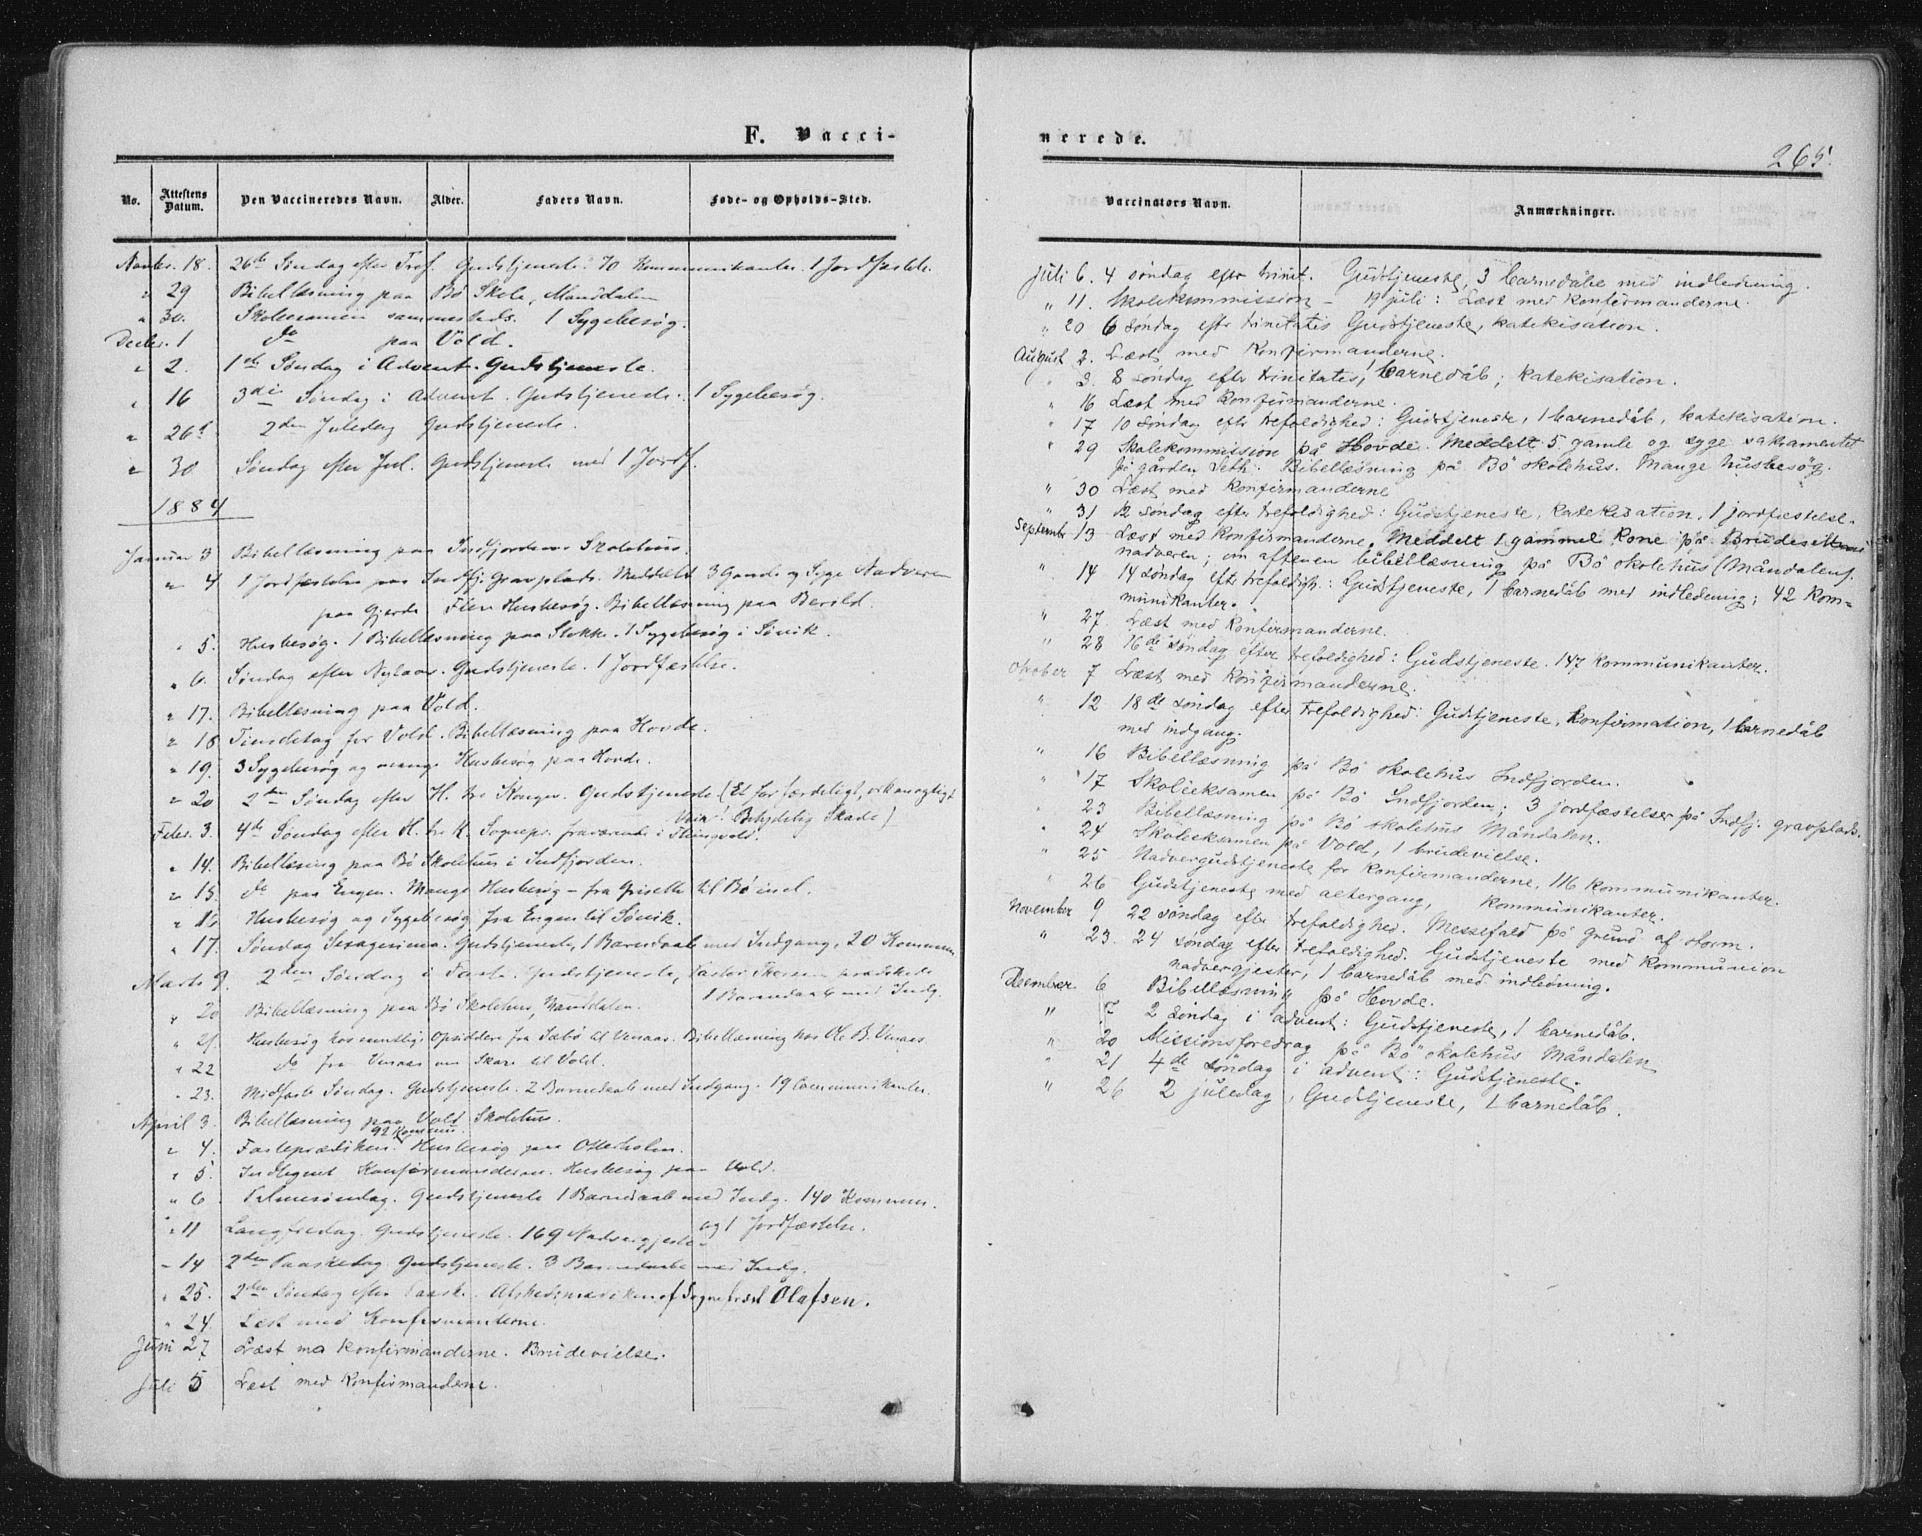 F. Vacci-
No. Attestens Datum. Den Vaccineredes Navn. Alder. Faders Navn. Føde- og Opholds-Sted.
Novbr. 18. 26de Søndag efter Tref. Gudstjeneste. 70 Kommunikanter. 1 Jordfæstelse.
" 29 Bibellæsning paa Bø Skole, Manddalen
" 30. Skoleexamen sammesteds. 1 Sygebesøg.
Decbr. 1 do paa Vold.
" 2. 1ste Søndag i Advent. Gudstjeneste.
" 16 3die Søndag i Advent. Gudstjeneste. 1 Sygebesøg.
" 26 2den Juledag Gudstjeneste.
" 30 Søndag efter Jul. Gudstjeneste med 1 Jordf.
1884
Januar 3 Bibellæsning paa Indfjordens Skolehus.
" 4 1 Jordfæstelse paa Indfj. Gravplads. Meddelt 3 Gamle og Syge Nadveren
paa Gjerde. Flere Husbesøg. Bibellæsning paa Berild.
" 5. Husbesøg. 1 Bibellæsning paa Stokke. 1 Sygebesøg i Søvik.
" 6. Søndag efter Nytaar. Gudstjeneste. 1 Jordfæstelse.
" 17. Bibellæsning paa Vold.
" 18 for Vold. Bibellæsning paa Hovde.
" 19. 3 Sygebesøg og mange Husbesøg paa Hovde.
" 20 2den Søndag efter H. tre Konger. Gudstjeneste (Et forfærdeligt, orkanagtigt
Veir! Betydelig Skade)
Febr. 3. 4de Søndag efter H. tre K. Sognepr. fraværende i
" 14. Bibellæsning paa Bø Skolehus i Indfjorden.
" 15. do paa Engen. Mange Husbesøg – fra Griseth til Bø incl.
" 16 Husbesøg og Sygebesøg fra Engen til Søvik.
" 17. Søndag Sexagesima. Gudstjeneste, 1 Barnedaab med Indgang, 20 Kommun.
Marts 9. 2den Søndag i Faste. Gudstjeneste, Pastor prædikede
1 Barnedaab med Indg.
" 20 Bibellæsning paa Bø Skolehus, Manddalen.
" 21. Husbesøg hos samtlige Opsiddere fra Sæbø til Venaas. Bibellæsning hos Ole B. Venaas
" 22 do fra Venaas om Skare til Vold.
" 23. Midfaste Søndag. Gudstjeneste. 2 Barnedaab med Indgang. 19 Communikanter.
April 3. Bibellæsning paa Vold Skolehus.
92 Kommun.
" 4. Fasteprædiken. Husbesøg paa Otterholm.
" 5. Indtegnet Konfirmanderne. Husbesøg paa Vold.
" 6 Palmesøndag. Gudstjeneste 1 Barnedaab med Indg. 140 Kommun.
" 11 Langfredag. Gudstjeneste. 169 Nadvergjester og 1 Jordfæstelse.
" 14 2den Paaskedag. Gudstjeneste. 3 Barnedaab med Indg.
" 25. 2den Søndag efter Paaske. Afskedsprædiken af Sogneprest Olafsen.
" 24. Læst med Konfirmanterne.
Juni 27 Læst m Konfirmanderne. Brudevielse.
Juli 5 Læst med Konfirmanderne.
nerede.
265.
Vaccinators Navn. Anmærkninger.
Juli 6. 4 søndag eftr trinit. Gudstjeneste, 3 barnedåbe med indledning.
" 11. Skolekommission – 19 juli: Læst med Konfirmanderne.
" 20 6 søndag eftr trinitatis Gudstjeneste, katekisation.
August 2. Læst med Konfirmanderne.
" 3. 8 søndag eftr trinitatis, 1 barnedåb, katekisation.
" 16 Læst med Konfirmanderne.
" 17 10 søndag eftr trefoldighed: Gudstjeneste, 1 barnedåb, katekisation.
" 29 Skolekommission på Hovde. Meddelt 5 gamle og syge sakramentet
på gården Seth. Bibellæsning på Bö skolehus. Mange husbesøg.
" 30 Læst med Konfirmanderne
" 31 12 søndag eftr trefoldighed: Gudstjeneste, katekisation, 1 jordfæstelse.
Septembr 13 Læst med Konfirmanderne. Meddelt 1 gammel Kone på
nadveren; om aftenen bibellæsning på Bö skolehus (Måndalen).
" 14 14 søndag eftr trefoldigh: Gudstjeneste, 1 barnedåb med indledning; 42 kom-
munikanter.
" 27. Læst med Konfirmanderne.
" 28 16de søndag efter trefoldighed: Gudstjeneste. 147 kommunikanter.
Oktober 7 Læst med Konfirmanderne.
" 12 18de søndag efter trefoldighed: Gudstjeneste, Konfirmation, 1 barnedåb
med indgang.
" 16 Bibellæsning på Bö skolehus Indfjorden.
" 17 Skoleeksamen på Bö Indfjorden; 3 jordfæstelser på Indfj. gravplads.
" 23 Bibellæsning på Bö skolehus Måndalen.
" 24 Skoleeksamen på Vold, 1 brudevielse.
" 25 Nadvergudstjeneste for Konfirmanderne, 116 kommunikanter.
" 26 Gudstjeneste med altergang, kommunikanter.
November 9 22 søndag eftr trefoldighed. Messefald på grund af storm.
" 23. 24 søndag efter trefoldighed. Gudstjeneste med kommunion
nadvergjester, 1 barnedåb med indledning.
December 6 Bibellæsning på Hovde.
" 7 2 søndag i advent: Gudstjeneste, 1 barnedåb.
" 20 Missionsforedrag på Bö skolehus Måndalen
" 21 4de søndag i advent: Gudstjeneste.
" 26 2 juledag, Gudstjeneste, 1 barnedåb.